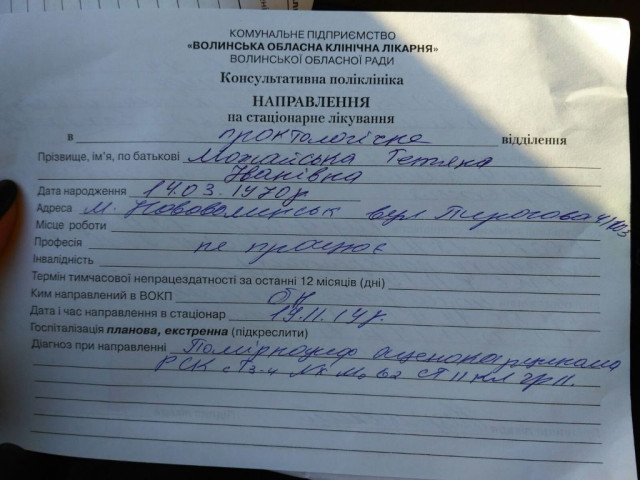 КОМУНАЛЬНЕ ПІДПРИЄМСТВО
«ВОЛИНСЬКА ОБЛАСНА КЛІНІЧНА ЛІКАРНЯ»
ВОЛИНСЬКОЇ ОБЛАСНОЇ РАДИ
Консультативна поліклініка
НАПРАВЛЕННЯ
на стаціонарне лікування
в проктологічне відділення
Прізвище, ім'я, по батькові Можайська Тетяна
Іванівна
Дата народження 14.03.1970р
Адреса м. Нововолинськ вул Пирогова
Місце роботи
Професія не працює
Інвалідність
Термін тимчасової непрацездатності за останні 12 місяців (дні)
Ким направлений в ВОКП
Дата і час направлення в стаціонар 19.11.
Госпіталізація планова, екстренна (підкреслити)
Діагноз при направленні аденокарцинома
РСК Nx M0 ст II кл гр II.